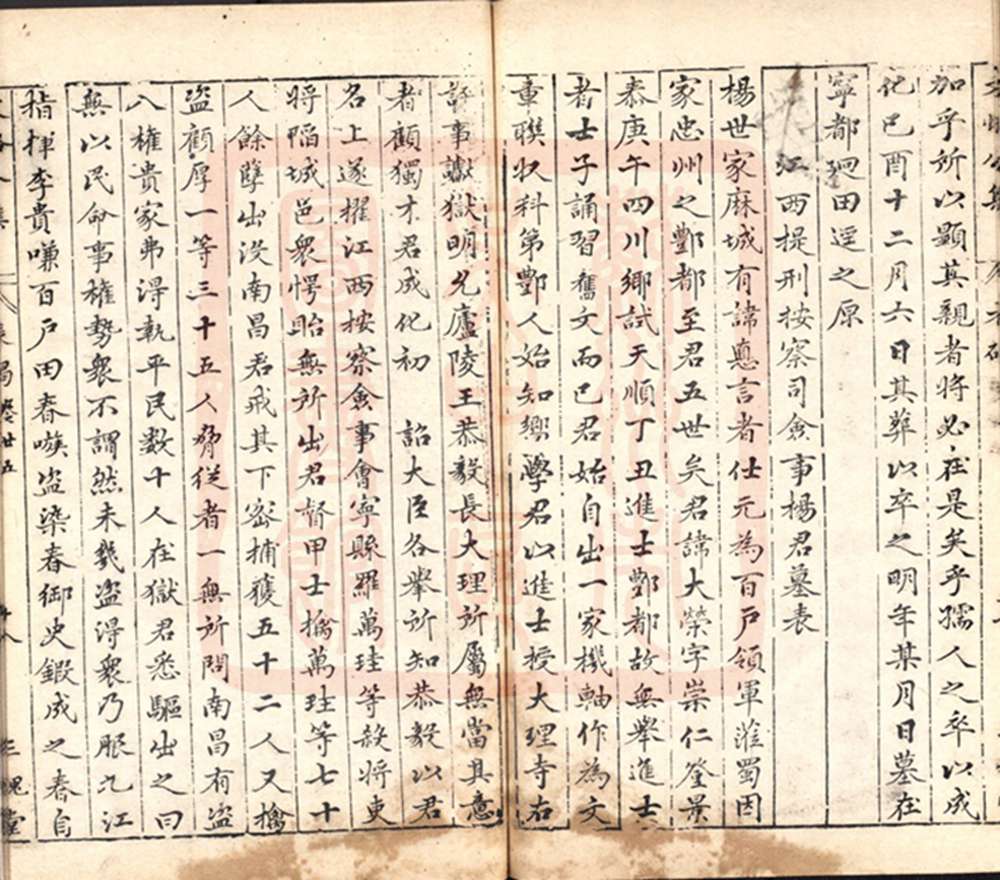 加乎所以顯其親者將必在是矣乎孺人之卒以成
化己酉十二月六日其葬以卒之明年某月日墓在
寧都廻田逕之原
江西提刑按察司僉事楊君墓表
楊世家麻城有諱惪言者仕元為百戶領軍澨蜀因
家忠州之酆都至君五世矣君諱大榮字崇仁登景
泰庚午四川鄉試天順丁丑進士酆都故無舉進士
者士子誦習舊文而已君始自出一家機軸作為文
章聯收科第酆人始知嚮學君以進士授大理寺右
評事讞獄明允廬陵王恭毅長大理所屬無當其意
者顧獨才君成化初 詔大臣各舉所知恭毅以君
名上遂擢江西按察僉事會寧縣羅萬珪等殺將吏
將陷城邑衆愕眙無所出君督甲士擒萬珪等七十
人餘孽出沒南昌君戒其下密捕獲五十二人又擒
盜顧厚一等三十五人脅從者一無所問南昌有盜
八權貴家弗得執平民數十人在獄君悉驅出之曰
無以民命事權勢衆不謂然未幾盜得衆乃服九江
指揮李貴嗛百戶田春嗾盜染春御史鍜成之春自